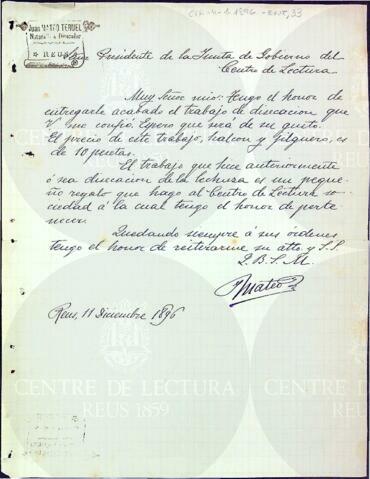 Juan MATEO TERUEL
REUS
Presidente de la Junta de Gobierno del
Centro de Lectura
Muy Señor mio: Tengo el honor de
entregarle acabado el trabajo de disecacion que
me confió. Espero que será de su gusto.
El precio de este trabajo, halcon y Gilguero, es
de 10 pesetas.
El trabajo que hice anteriormente
ó sea disecacion de la lechuza es un peque
ño regalo que hago al Centro de Lectura so-
ciedad á la cual tengo el honor de perte
necer.
Quedando siempre á sus órdenes
tengo el honor de reiterarme su atto. y S.S.
Q. B. S. M.
Mateo
Reus, 11 Diciembre 1896
CENTRE DE LECTURA
REUS 1859